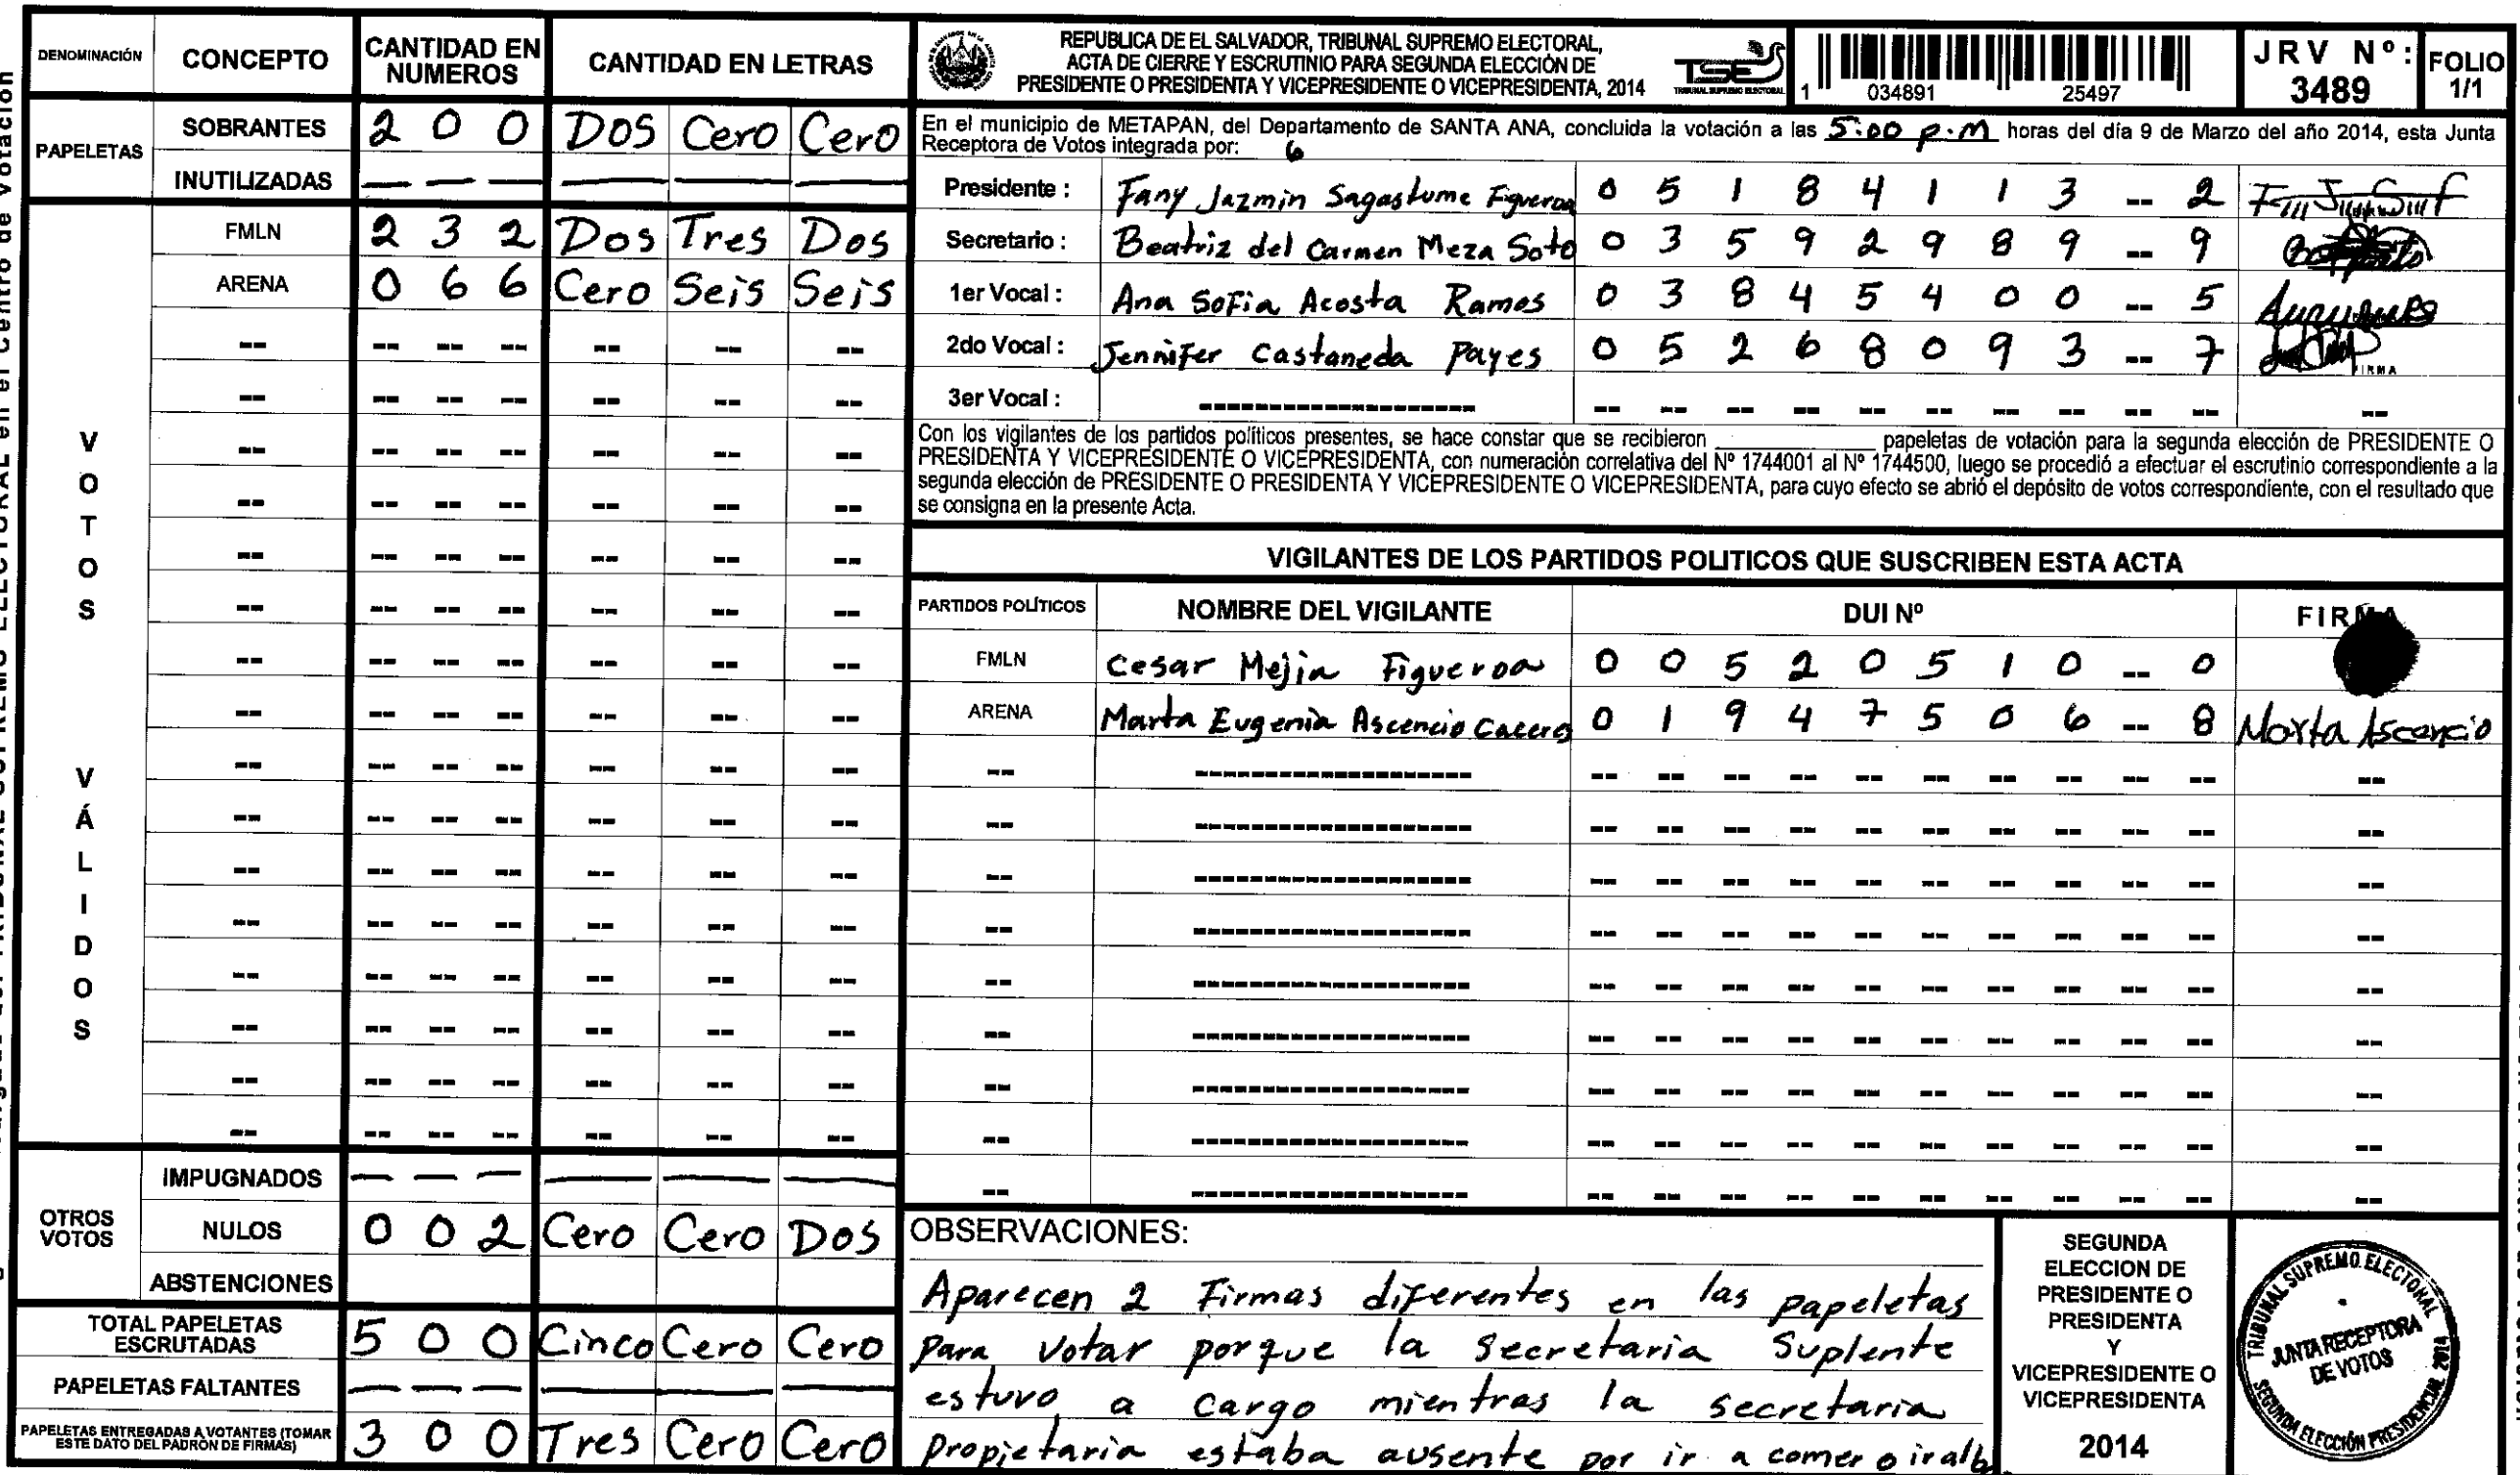 DENOMINACIÓN CONCEPTO CANTIDAD EN NUMEROS CANTIDAD EN LETRAS
PAPELETAS
SOBRANTES 2 0 0 Dos Cero Cero
INUTILIZADAS — — — — — —
VOTOS VÁLIDOS
FMLN 2 3 2 Dos Tres Dos
ARENA 0 6 6 Cero Seis Seis
OTROS VOTOS
IMPUGNADOS — — — — — —
NULOS 0 0 2 Cero Cero Dos
ABSTENCIONES
TOTAL PAPELETAS ESCRUTADAS 5 0 0 Cinco Cero Cero
PAPELETAS FALTANTES — — — — — —
PAPELETAS ENTREGADAS A VOTANTES (TOMAR ESTE DATO DEL PADRÓN DE FIRMAS) 3 0 0 Tres Cero Cero
REPUBLICA DE EL SALVADOR, TRIBUNAL SUPREMO ELECTORAL,
ACTA DE CIERRE Y ESCRUTINIO PARA SEGUNDA ELECCIÓN DE
PRESIDENTE O PRESIDENTA Y VICEPRESIDENTE O VICEPRESIDENTA, 2014
TSE
TRIBUNAL SUPREMO ELECTORAL
1 034891 25497
JRV Nº: 3489
FOLIO 1/1
En el municipio de METAPAN, del Departamento de SANTA ANA, concluida la votación a las 5:00 p.m horas del día 9 de Marzo del año 2014, esta Junta
Receptora de Votos integrada por: 6
Presidente : Fany Jazmin Sagastume Figueroa 0 5 1 8 4 1 1 3 -- 2
Secretario : Beatriz del Carmen Meza Soto 0 3 5 9 2 9 8 9 -- 9
1er Vocal : Ana Sofia Acosta Ramos 0 3 8 4 5 4 0 0 -- 5
2do Vocal : Jennifer Castaneda Payes 0 5 2 6 8 0 9 3 -- 7
FIRMA
3er Vocal :
Con los vigilantes de los partidos políticos presentes, se hace constar que se recibieron ________ papeletas de votación para la segunda elección de PRESIDENTE O
PRESIDENTA Y VICEPRESIDENTE O VICEPRESIDENTA, con numeración correlativa del Nº 1744001 al Nº 1744500, luego se procedió a efectuar el escrutinio correspondiente a la
segunda elección de PRESIDENTE O PRESIDENTA Y VICEPRESIDENTE O VICEPRESIDENTA, para cuyo efecto se abrió el depósito de votos correspondiente, con el resultado que
se consigna en la presente Acta.
VIGILANTES DE LOS PARTIDOS POLITICOS QUE SUSCRIBEN ESTA ACTA
PARTIDOS POLÍTICOS NOMBRE DEL VIGILANTE DUI Nº FIRMA
FMLN Cesar Mejia Figueroa 0 0 5 2 0 5 1 0 -- 0
ARENA Marta Eugenia Ascencio Caceres 0 1 9 4 7 5 0 6 -- 8 Marta Ascencio
OBSERVACIONES:
Aparecen 2 Firmas diferentes en las papeletas
para votar porque la secretaria Suplente
estuvo a cargo mientras la secretaria
propietaria estaba ausente por ir a comer o ir al b.
SEGUNDA
ELECCION DE
PRESIDENTE O
PRESIDENTA
Y
VICEPRESIDENTE O
VICEPRESIDENTA
2014
TRIBUNAL SUPREMO ELECTORAL
JUNTA RECEPTORA
DE VOTOS
SEGUNDA ELECCIÓN PRESIDENCIAL 2014